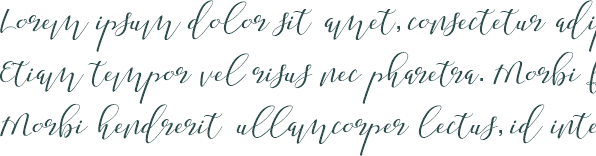 Lorem ipsum dolor sit amet, consectetur adip
Etiam tempor vel risus nec pharetra. Morbi f
Morbi hendrerit ullamcorper lectus, id inte